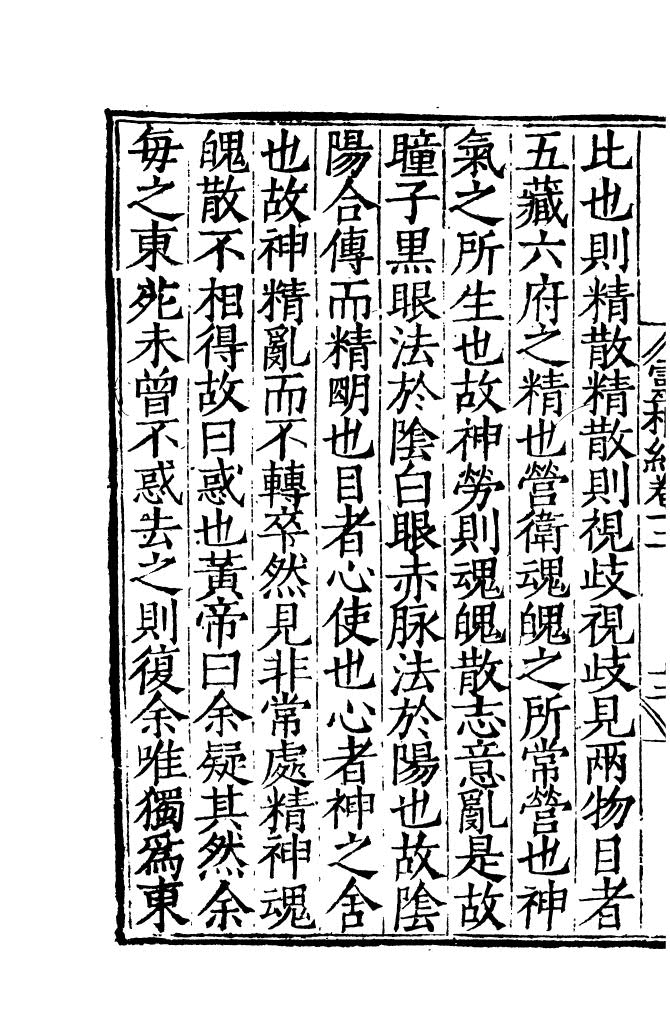 比也則精散精散則視歧視歧見兩物目者
五藏六府之精也營衛魂魄之所常營也神
氣之所生也故神勞則魂魄散志意亂是故
瞳子黑眼法於陰白眼赤脉法於陽也故陰
陽合傳而精明也目者心使也心者神之舍
也故神精亂而不轉卒然見非常處精神魂
魄散不相得故曰惑也黃帝曰余疑其然余
每之東苑未曾不惑去之則復余唯獨爲東